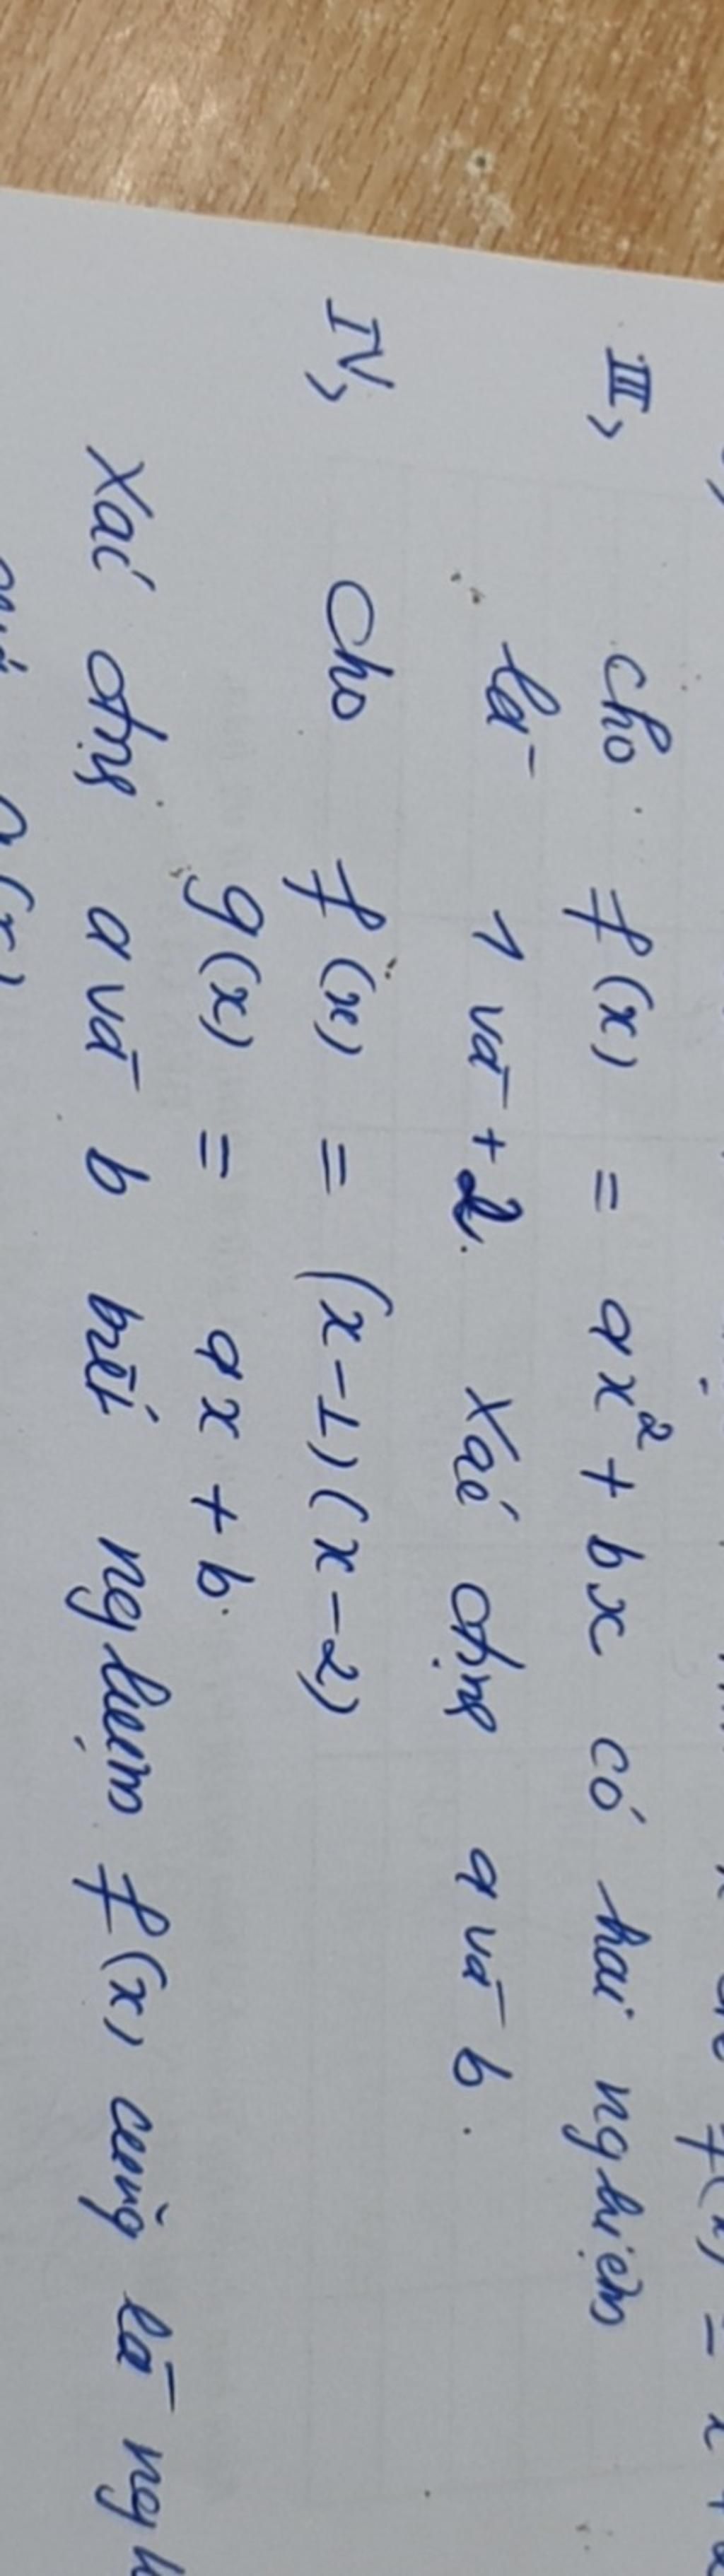 III, cho f(x) = ax² + bx có hai nghiệm
là 1 và +2. Xác định a và b.
IV, Cho f(x) = (x-1)(x-2)
g(x) = ax + b.
Xác định a và b biết nghiệm f(x) cũng là